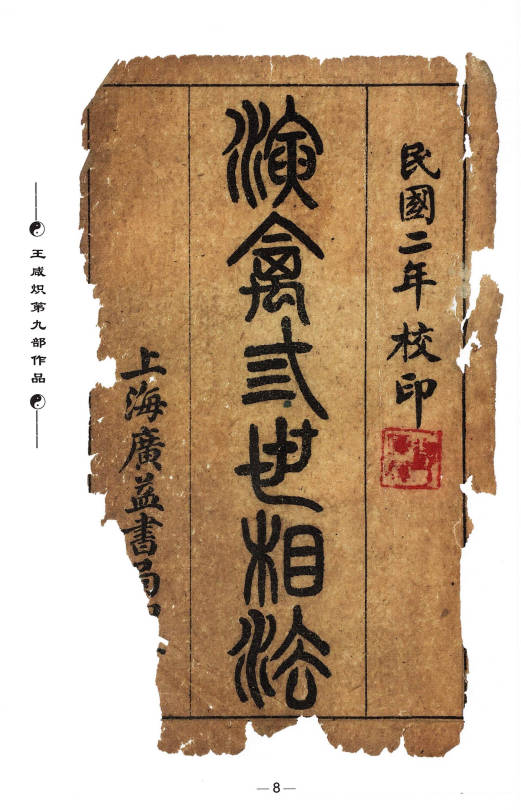 民國二年校印
演禽弎世相法
上海廣益書局
王咸炽第九部作品
—8—